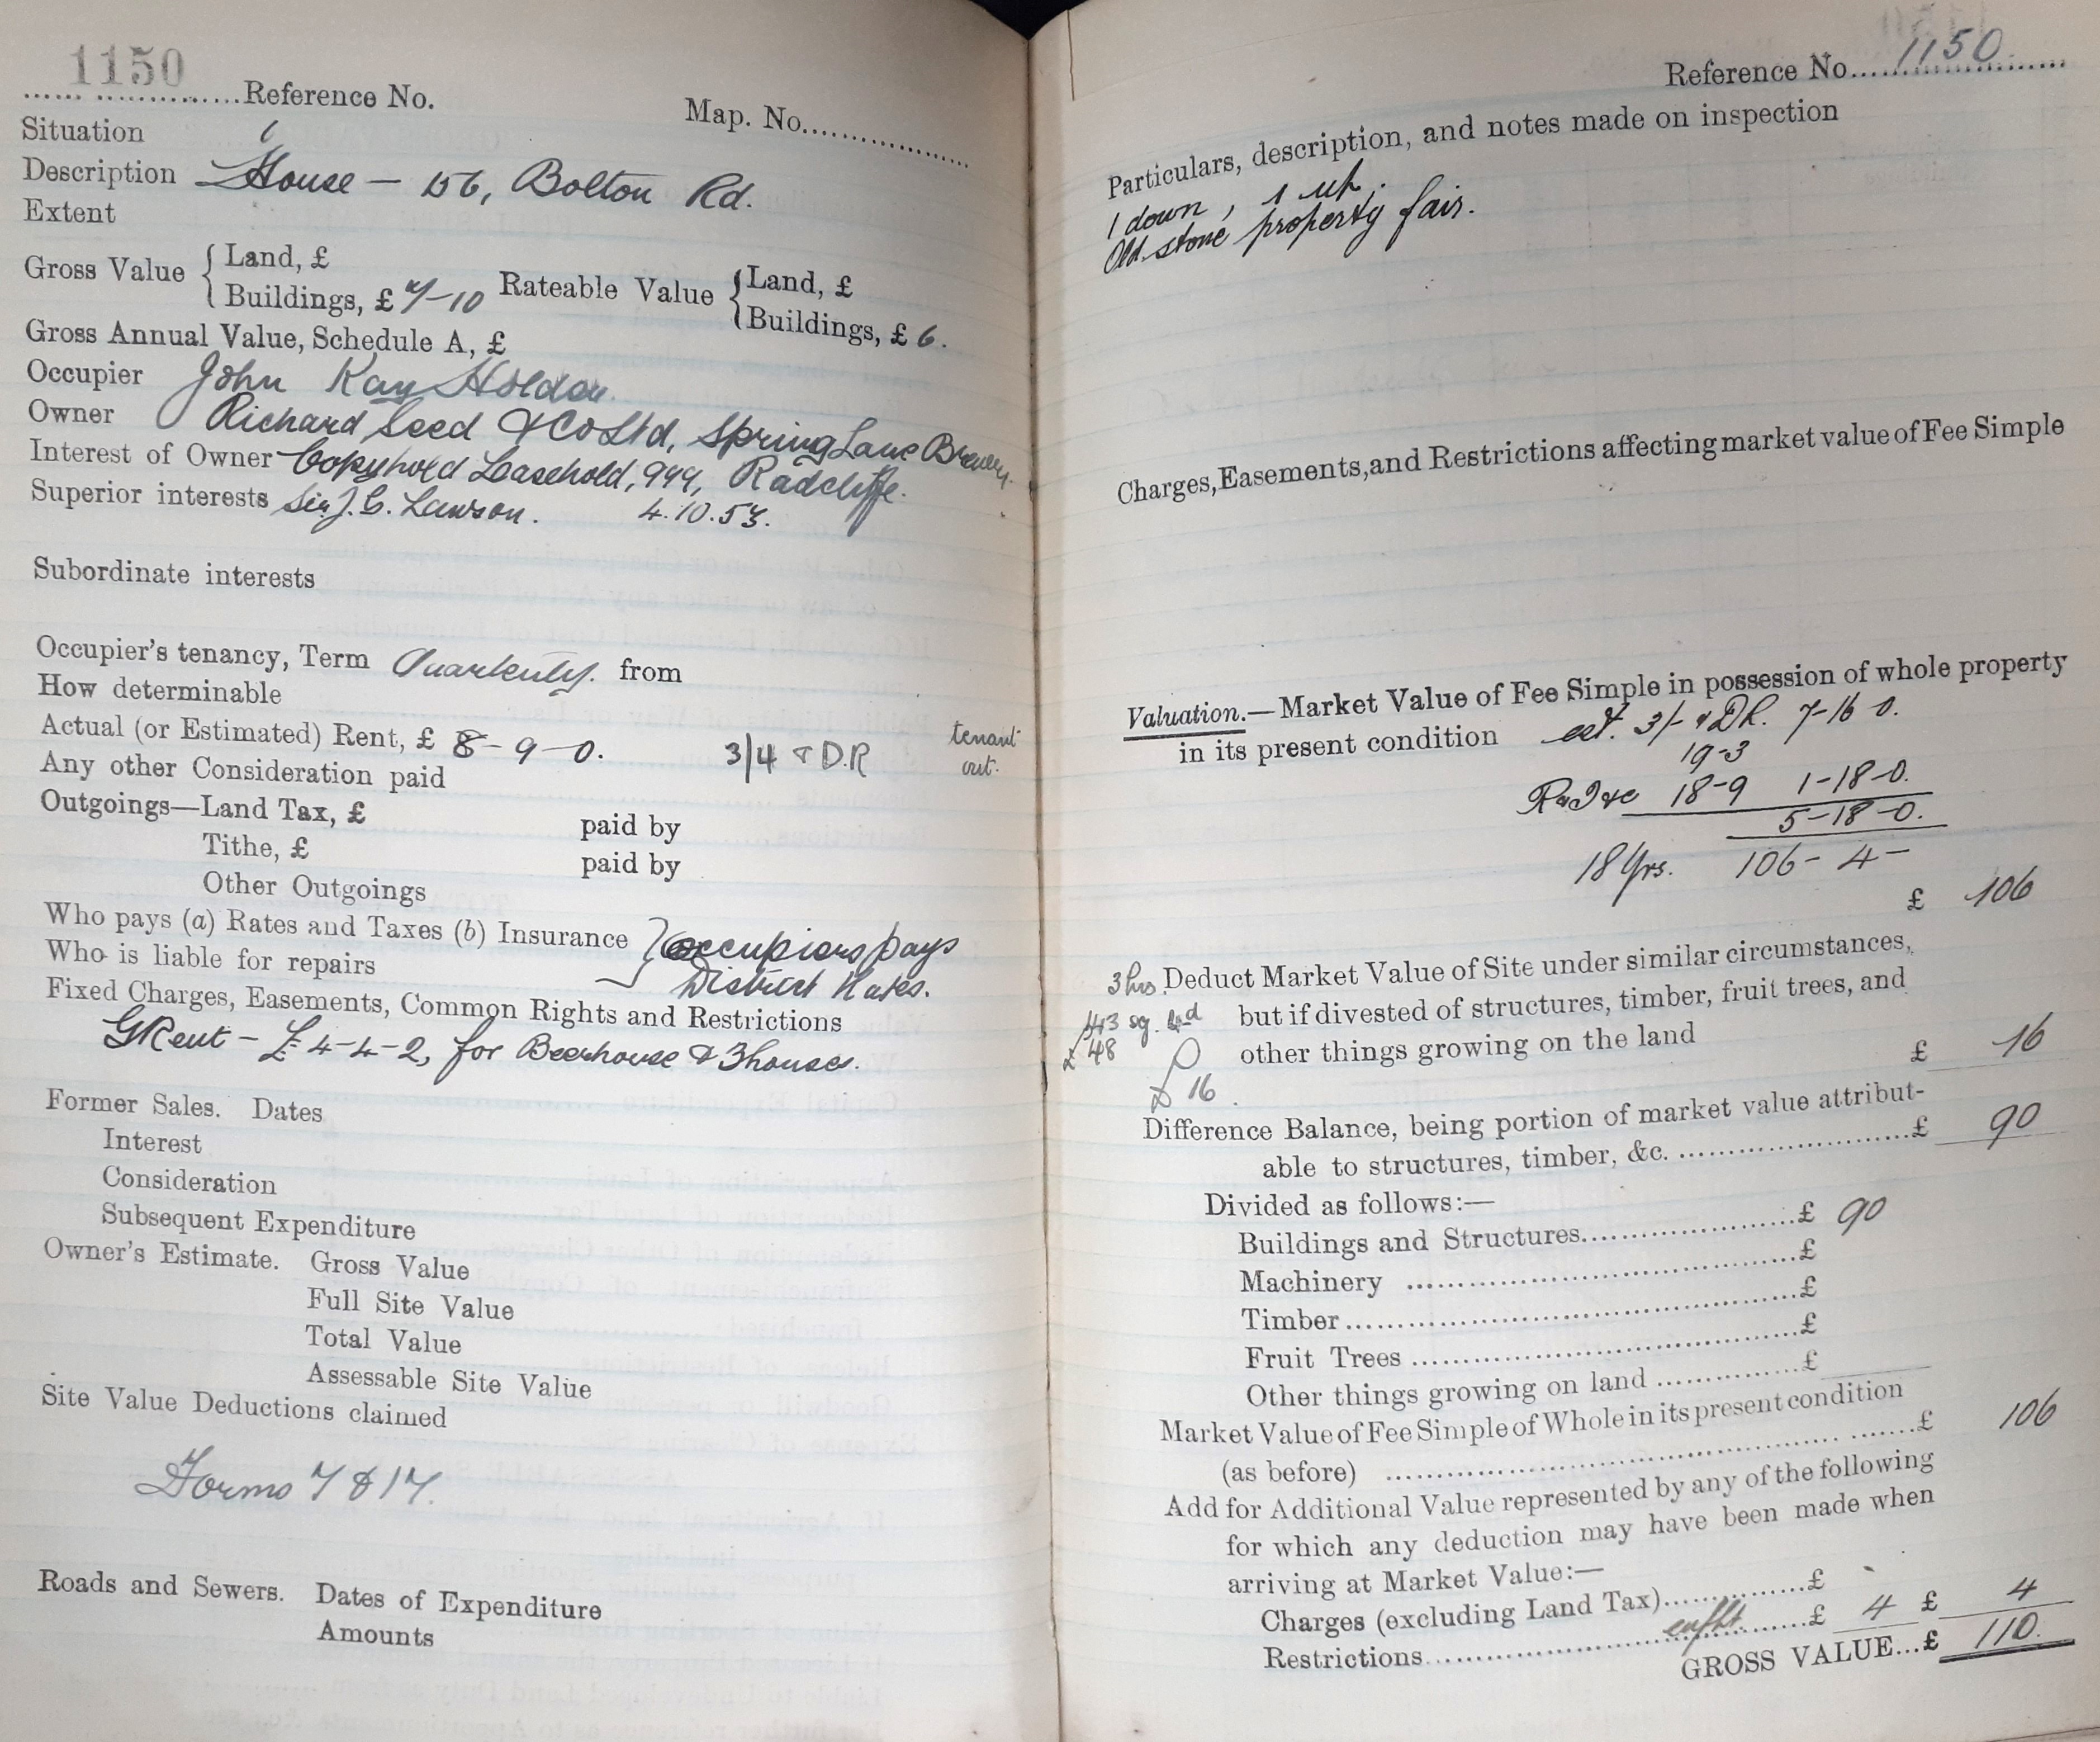 1150
Reference No.
Map. No.
Situation
Description House — 156, Bolton Rd.
Extent
Gross Value { Land, £
Buildings, £ 7-10 Rateable Value { Land, £
Buildings, £ 6.
Gross Annual Value, Schedule A, £
Occupier John Kay Holden.
Owner Richard Seed & Co Ltd, Spring Lane Brewery.
Interest of Owner Copyhold Leasehold, 999, Radcliffe.
Superior interests Sir J. G. Lawson. 4.10.53.
Subordinate interests
Occupier's tenancy, Term Quarterly. from
How determinable
Actual (or Estimated) Rent, £ 8-9-0. 3/4 & D.R tenant
Any other Consideration paid out.
Outgoings—Land Tax, £ paid by
Tithe, £ paid by
Other Outgoings
Who pays (a) Rates and Taxes (b) Insurance } occupiers pays
Who is liable for repairs District Rates.
Fixed Charges, Easements, Common Rights and Restrictions
GRent - £4-4-2, for Beerhouse & 3 houses.
Former Sales. Dates
Interest
Consideration
Subsequent Expenditure
Owner's Estimate. Gross Value
Full Site Value
Total Value
Assessable Site Value
Site Value Deductions claimed
Forms 7 & 17.
Roads and Sewers. Dates of Expenditure
Amounts
Reference No. 1150
Particulars, description, and notes made on inspection
1 down, 1 up.
Old stone property fair.
Charges, Easements, and Restrictions affecting market value of Fee Simple
Valuation.—Market Value of Fee Simple in possession of whole property
in its present condition est. 3/- & D.R. 7-16-0.
19-3
18-9 1-18-0.
5-18-0.
18 Yrs. 106-4-
£ 106
3 hrs. Deduct Market Value of Site under similar circumstances,
but if divested of structures, timber, fruit trees, and
£ 48 other things growing on the land £ 16
£ 16.
Difference Balance, being portion of market value attribut-
able to structures, timber, &c. £ 90
Divided as follows:—
Buildings and Structures £ 90
Machinery £
Timber £
Fruit Trees £
Other things growing on land £
Market Value of Fee Simple of Whole in its present condition
(as before) £ 106
Add for Additional Value represented by any of the following
for which any deduction may have been made when
arriving at Market Value:—
Charges (excluding Land Tax) £
Restrictions £ 4 £ 4
GROSS VALUE...£ 110.